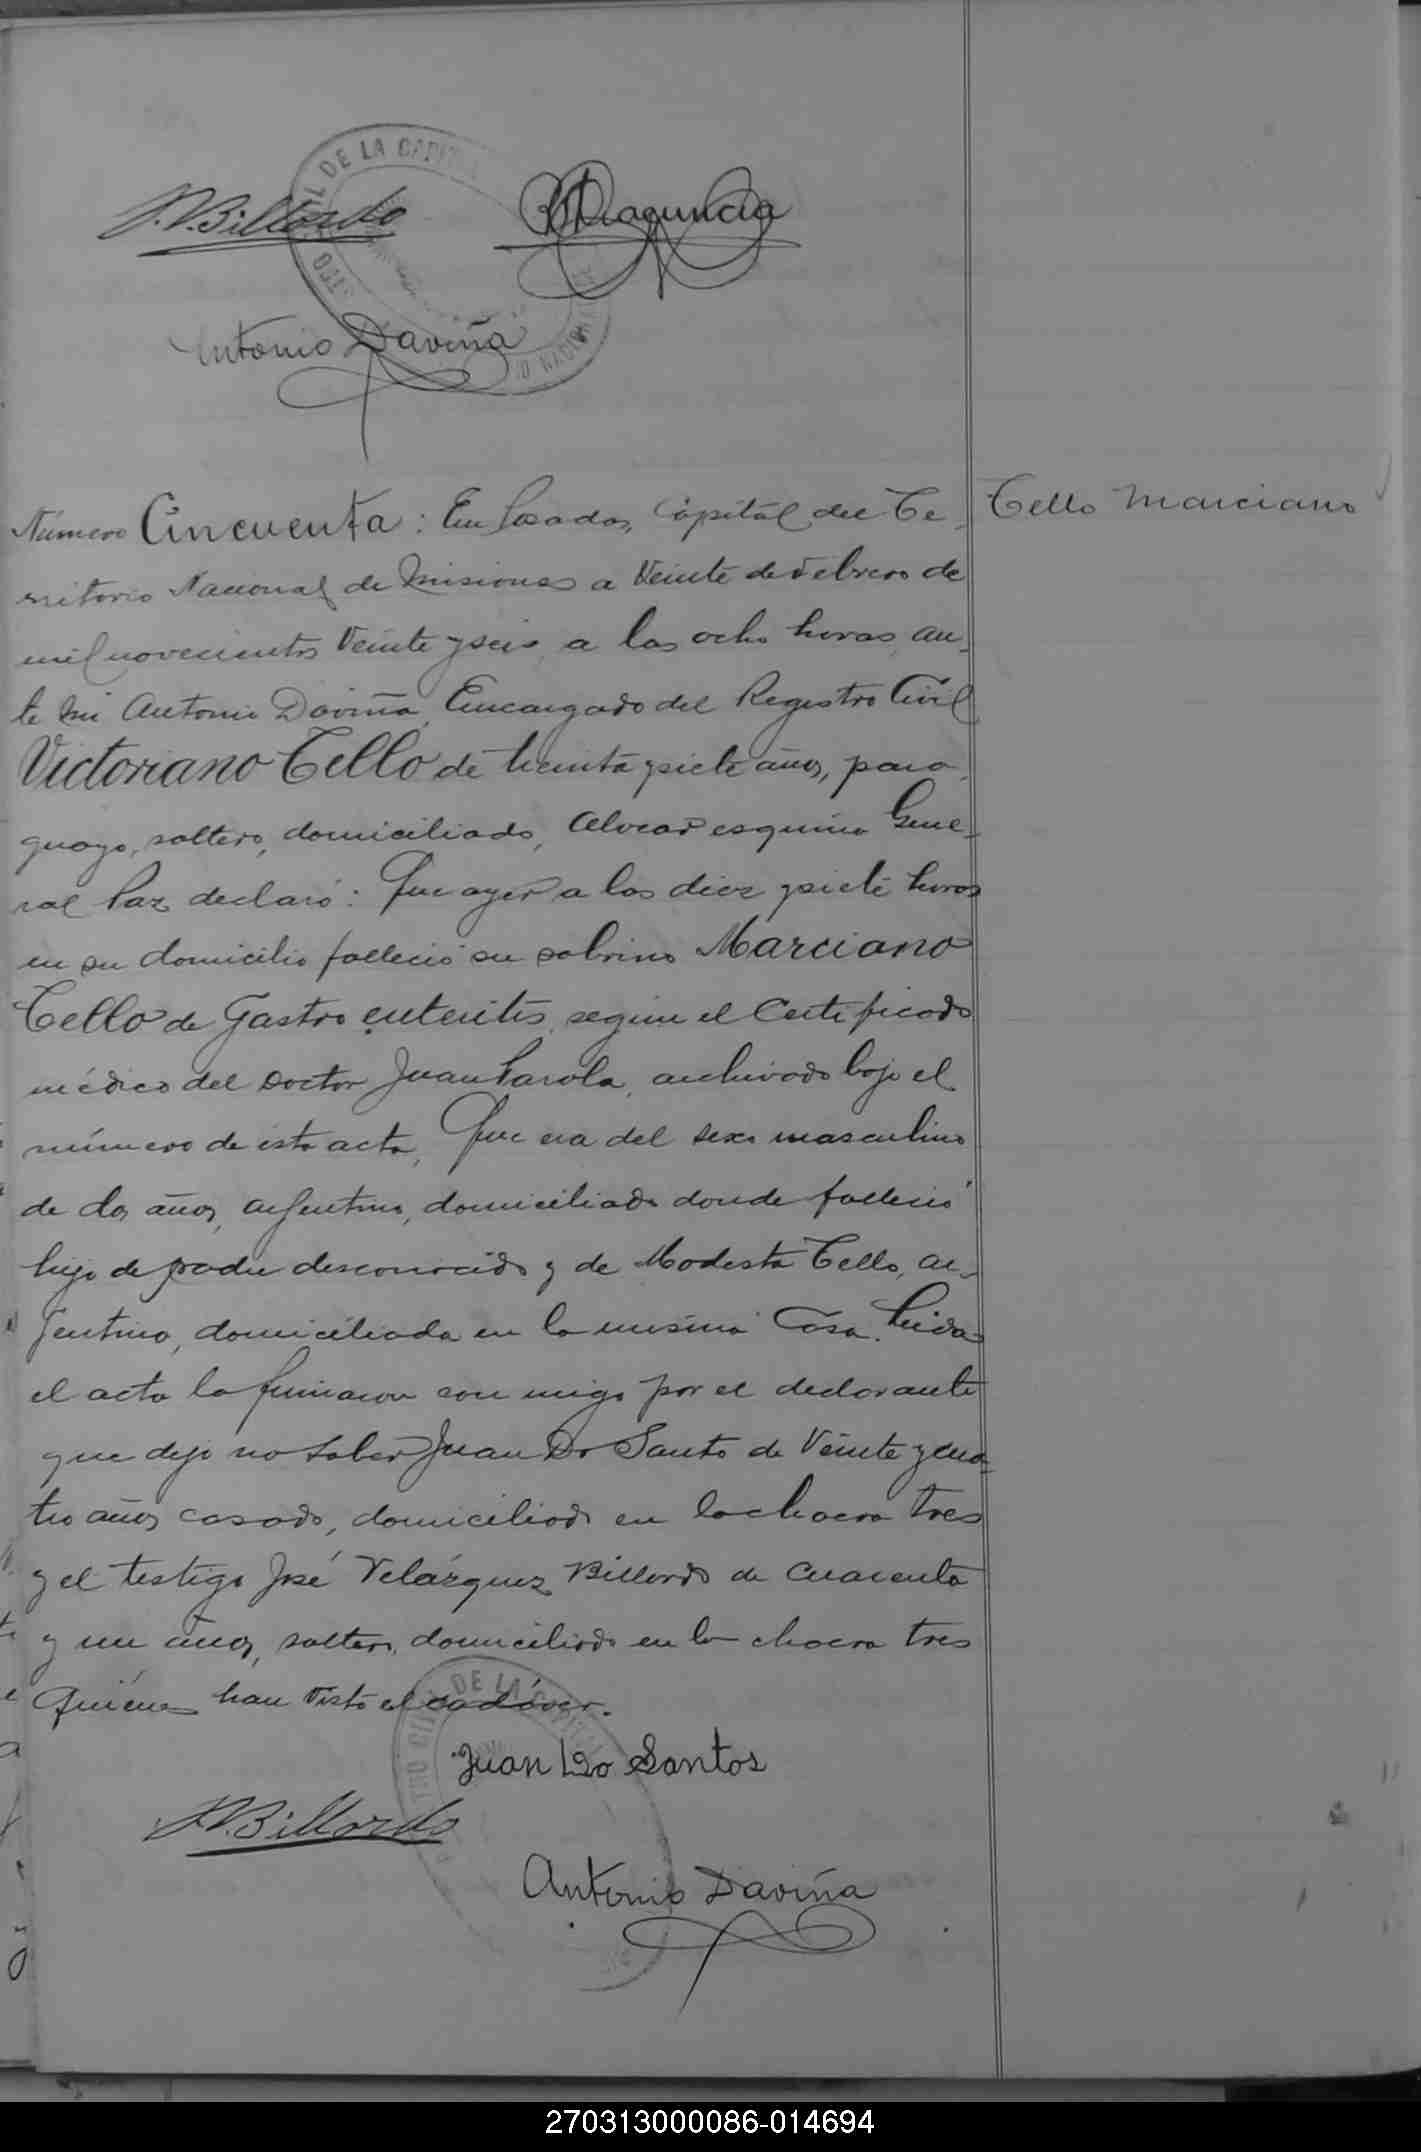 DE LA CAPITAL
J.V. Billordo
Antonio Daviña
Número Cincuenta: En Posadas, Capital del Te-
Tello Marciano
rritorio Nacional de Misiones a Veinte de Febrero de
mil novecientos Veinte y seis, a las ocho horas, an-
te mi Antonio Daviña, Encargado del Registro Civil
Victoriano Tello de treinta y siete años, para-
guayo, soltero, domiciliado, Alvear esquina Gene-
ral Paz declaró: Que ayer a las diez y siete horas
en su domicilio falleció su sobrino Marciano
Tello de Gastro enteritis, según el Certificado
médico del Doctor Juan Parola, archivado bajo el
número de ésta acta, Que era del sexo masculino
de dos años, argentino, domiciliado donde falleció
hijo de padre desconocido y de Modesta Tello, ar-
gentina, domiciliada en la misma Casa. Leida
el acta la firmaron con migo por el declarante
que dijo no saber Juan Do Santo de Veinte y cua-
tro años casado, domiciliado en la chacra tres
y el testigo José Velázquez Billordo de Cuarenta
y un años, soltero, domiciliado en la chacra tres
Quiénes han visto el cadáver.
DE LA CAPITAL
Juan Do Santos
J.V. Billordo
Antonio Daviña
270313000086-014694